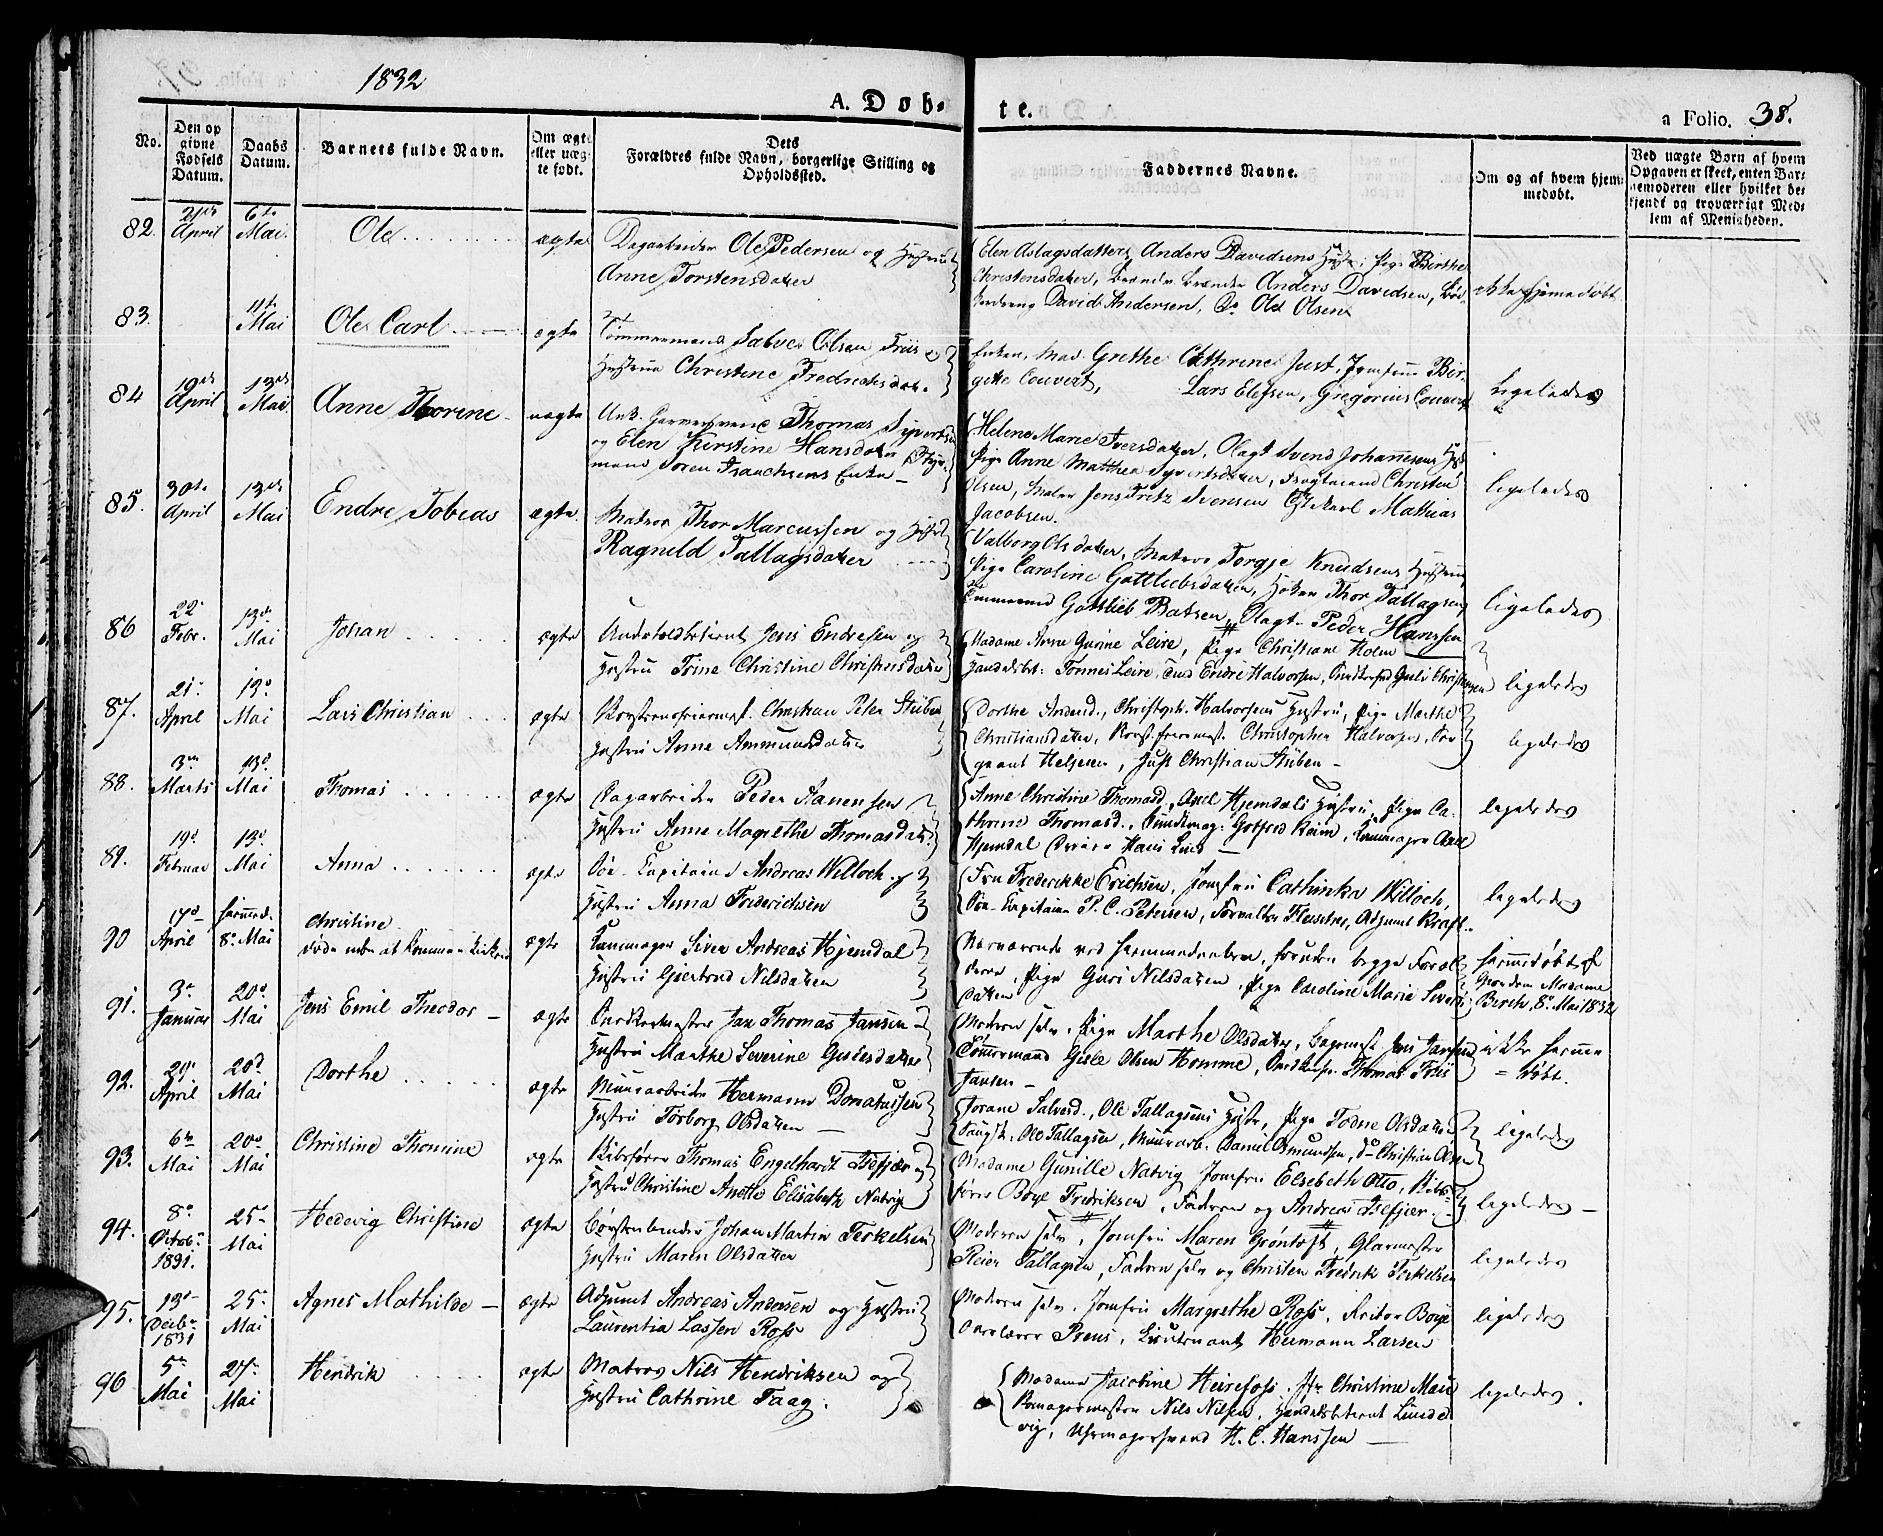 1832
A. Døb-
te.
a Folio. 38.
No.
Den op
givne
Fødsels
Datum.
Daabs
Datum.
Barnets fulde Navn.
Om ægte
eller uæg-
te født.
Dets
Forældres fulde Navn, borgerlige Stilling og
Opholdssted.
Faddernes Navne.
Om og af hvem hjem-
medøbt.
Ved uægte Børn af hvem
Opgaven er skeet, enten Bar-
nemoderen eller hvilket be-
kjendt og troværdigt Med-
lem af Menigheden.
82. 21de April 6te Mai. Ole ægte
Dagarbeider Ole Pedersen og Hustrue
Anne Torstensdatter
Elen Aslagsdatter, Anders Davidsens Hustr: Pige Berthe
Christensdatter, Anders Davidsen,
David Andersen, Do Ole Olsen
ikke hjemmedøbt
83. 11te Mai Ole Carl ægte
Tømmermand Salve Olsen Friis og
Hustrue Christine Fredrichsdatr.
Enken, Mad. Grethe Cathrine Just, Jomfrue Bir-
gitte Couvert, Lars Elefsen, Gregorius Couvert
Ligeledes
84 19de April 13de Mai Anne Thorine uægte
Unk. Garversvend Thomas Syvertsen
og Elen Kirstine Hansdatter Styr-
mand Søren Franchsens Enke
Helene Marie Iversdatter, Olagt Svend Johannesens Hust
Pige Anne Matthea Syvertsdatter, Christen
Olsen, Maler Jens Fritz Svensen Mathias
Jacobsen.
ligeledes
85. 30te April 13de Mai Endre Tobias ægte.
Matros Thor Marcussen og Hustrue
Ragnild Tallagsdatter
Valborg Olsdatter, Matros Torgje Knudsens Hustrue
Pige Caroline Gottliebsdatter, Høker Thor Tallagsen,
Tømmermand Gottlieb Batsen, Olagt Peder Hanssen
ligeledes
86 22 Febr. 13de Mai Johan ægte
Jens Endresen og
Hustru Trine Christine Christensdatter
Madame Anne Gurine Leire, Pige Christiane Holm
Handelsbet: Tønnes Leire, Endre Halvorsen, Guli Christensen
ligeledes
87. 21 April 13d Mai Lars Christian ægte
Christian Peter Stüben
Hustru Anne Ammundsdatter
Dorthe Andersd., Christoph. Halvorsens Hustru, Pige Marthe
Christiansdatter, Christopher Halvorsen, Ser-
geant Helgesen, Just Christian Stüben
ligeledes
88. 3die Marts 13d Mai Thomas ægte
Dagarbeider Peder Aanensen
Hustru Anne Magrethe Thomasdatr.
Anne Christine Thomasd., Axel Hjemdals Hustru, Pige Ca-
thrine Thomasd., Gotfred Keim, Axel
Hjemdal Hans Lind
ligeledes
89. 19d Februar 13d Mai Anna ægte
Søe-Capitain Andreas Willoch og
Hustru Anna Friderichsen
Fru Frederikke Erichsen, Jomfru Cathinka Willoch,
Søe-Capitain P. C. Petersen, Forvalter Fleischer, Adjunct Kraft
ligeledes
90 17d April hjemmed. 8d Mai Christine
døde uden at komme i Kirken ægte
Kammager Siver Andreas Hjemdal
Hustru Gjertrud Nilsdatter
Nærværende ved Hjemmedaaben, foruden begge Foræl-
drene, Pige Guri Nilsdatter, Pige Caroline Marie Severs-
datter
hjemmedøbt af
Jordem. Madame
Birch, 8d Mai 1832
91. 3d Januar 20d Mai Jens Emil Theodor ægte
Snedkermester Jan Thomas Jansen
Hustru Marthe Severine Gislesdatter
Moderen selv, Pige Marthe Olsdatter, Bagermest. Jens Jansen
Tømmermand Gisle Olsen Homme, Thomas Friis
Jansen
ikke hjemme-
= døbt.
92. 29d April 20d Mai Dorthe ægte
Muurarbeider Hermann Donatussen
Hustru Torborg Olsdatter
Jorane Salvesd., Ole Tallagsens Hustr, Pige Todne Olsdatter
Ole Tallagsen, Muurarb. Daniel Osmundsen, do Christian Olsen
ligeledes
93. 6te Mai 20d Mai Christine Thomine ægte
Skibsfører Thomas Engelhardt Isefjær og
Hustru Christine Anette Elisabeth Natvig
Madame Gunille Natvig Jomfru Elsebeth Otto, Skibs-
fører Boye Fredriksen, Faderen og Andreas Isefjær.
ligeledes
94. 8d Octob. 1831. 25 Mai Hedevig Christine ægte
Børstenbinder Johan Martin Terkelsen
Hustru Maren Olsdatter
Moderen selv, Jomfru Maren Grøntoft, Glarmester
Reier Tallagsen, Faderen selv og Christen Fredrik Terkelsen
ligeledes
95. 13d Decbr. 1831 25 Mai Agnes Mathilde ægte
Adjunct Andreas Andersen og Hustru
Laurentia Lassen Ross
Moderen selv, Jomfru Margrethe Ross, Rector Boye
Overlærer Preus, Lieutenant Hermann Larsen
ligeledes
96 5te Mai 27 Mai Hendrik ægte
Matros Nils Hendriksen og
Hustru Cathrine Faag.
Madame Jacobine Heirefoss, Jfr Christine Mau
Nils Nilsen, Handelsbetient Lunde-
vig, Uhrmagersvend H. C. Hanssen
ligeledes.